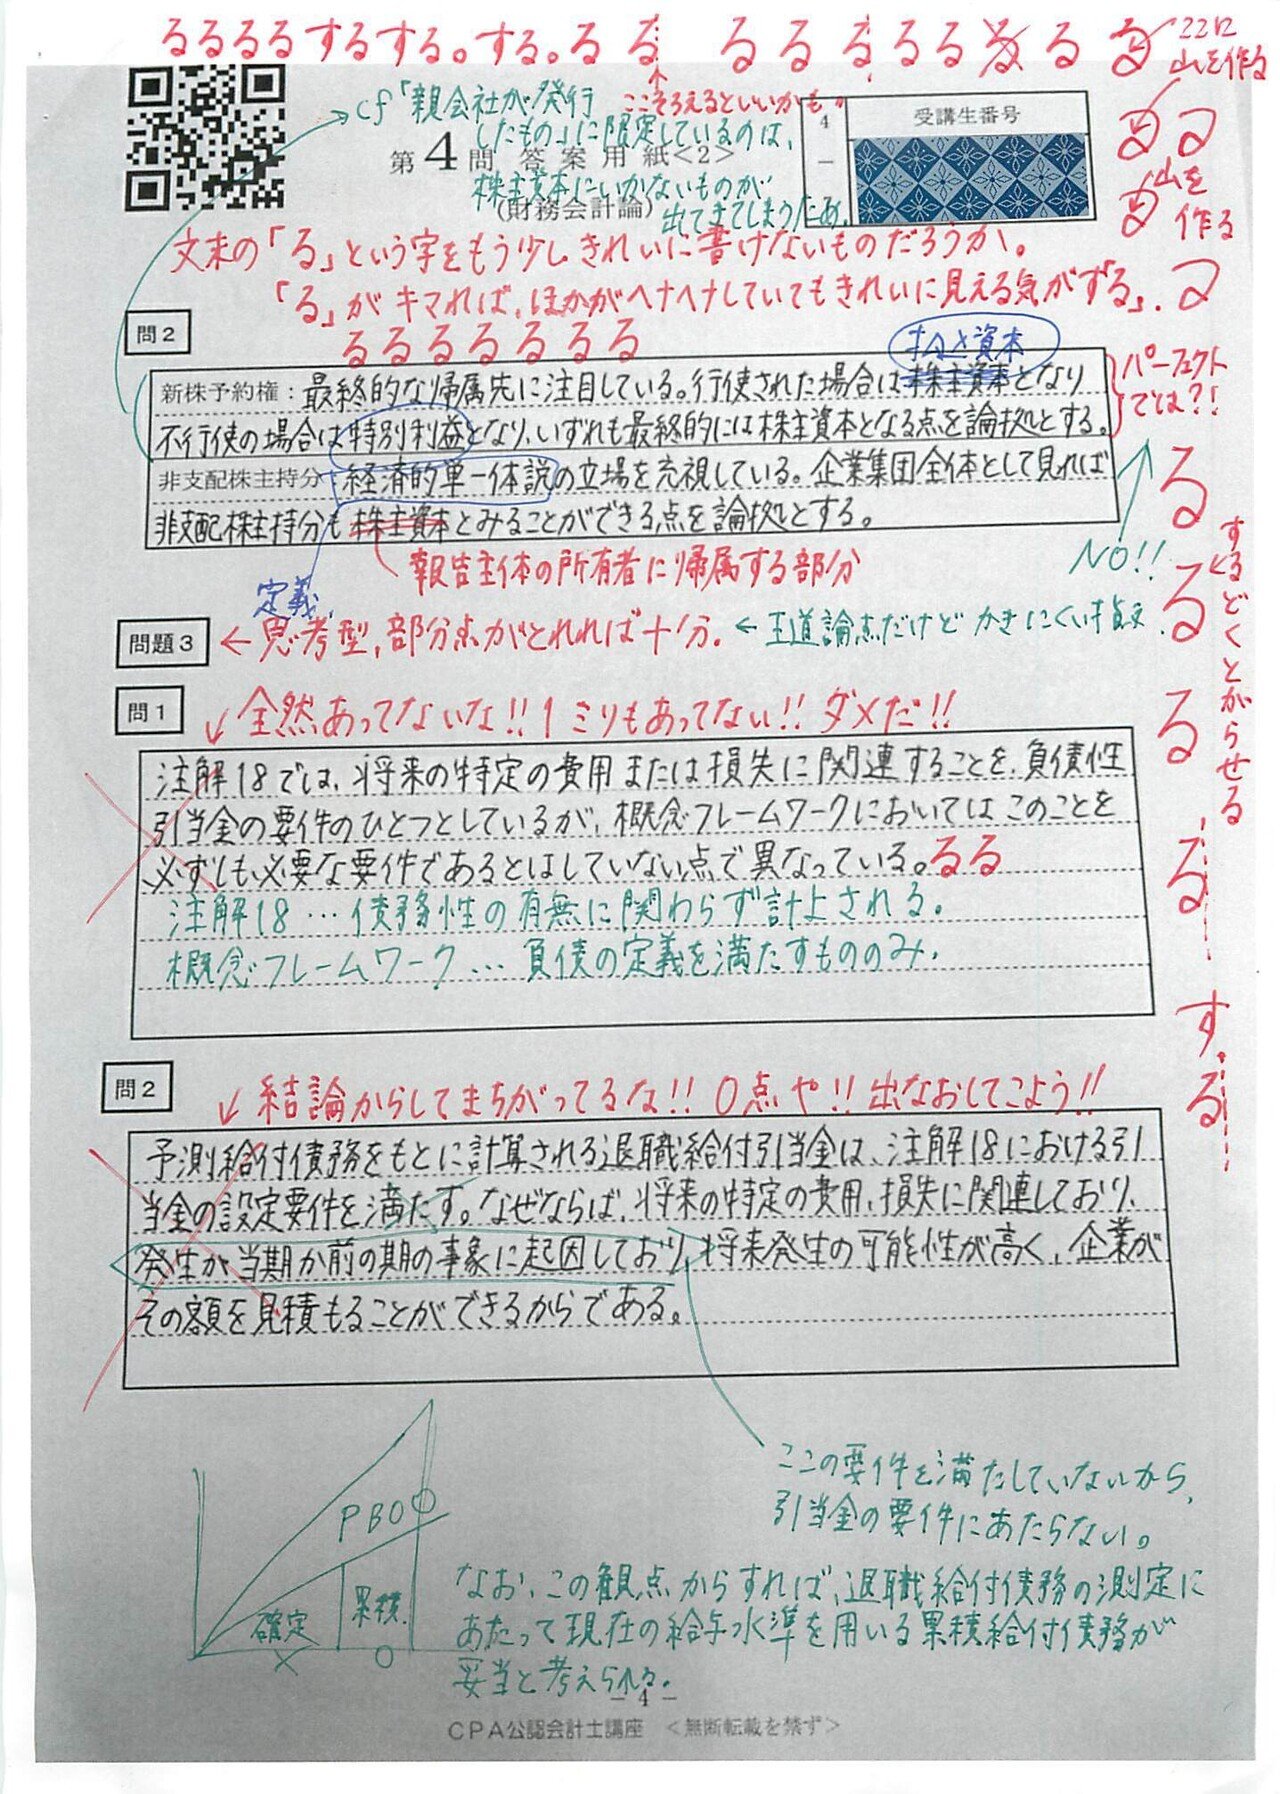 るるるるするする。する。るる るるるるるるる
ココに
山を作る
cf「親会社が発行
したもの」に限定しているのは、
株主資本にいかないものが
出てきてしまうため。
ここそろえるといいかも。
第4問 答案用紙<2>
(財務会計論)
4
－
受講生番号
山を
作る
文末の「る」という字をもう少しきれいに書けないものだろうか。
「る」がキマれば、ほかがヘナヘナしていてもきれいに見える気がする」.
るるるるるるる
問2
払込資本
新株予約権：最終的な帰属先に注目している。行使された場合は株主資本となり
不行使の場合は特別利益となり、いずれも最終的には株主資本となる点を論拠とする。
非支配株主持分：経済的単一体説の立場を充視している。企業集団全体として見れば
非支配株主持分も株主資本とみることができる点を論拠とする。
パーフェクト
では?!
NO!!
報告主体の所有者に帰属する部分
定義
問題3
←思考型,部分点がとれれば十分.
←王道論点だけどかきにくい
問1
↙全然あってないな!!1ミリもあってない!!ダメだ!!
注解18では、将来の特定の費用または損失に関連することを、負債性
引当金の要件のひとつとしているが、概念フレームワークにおいてはこのことを
必ずしも必要な要件であるとはしていない点で異なっている。るる
注解18…債務性の有無に関わらず計上される.
概念フレームワーク…負債の定義を満たすもののみ.
る
る
る
る
す.
る
するどくとがらせる
問2
↙結論からしてまちがってるな!!0点や!!出なおしてこよう!!
予測給付債務をもとに計算される退職給付引当金は、注解18における引
当金の設定要件を満たす。なぜならば、将来の特定の費用、損失に関連しており、
発生が当期か前の期の事象に起因しており、将来発生の可能性が高く、企業が
その額を見積もることができるからである。
ここの要件を満たしていないから,
引当金の要件にあたらない。
PBO○
確定
×
累積.
○
なお、この観点からすれば,退職給付債務の測定に
あたって現在の給与水準を用いる累積給付債務が
妥当と考えられる.
－4－
CPA公認会計士講座 ＜無断転載を禁ず＞